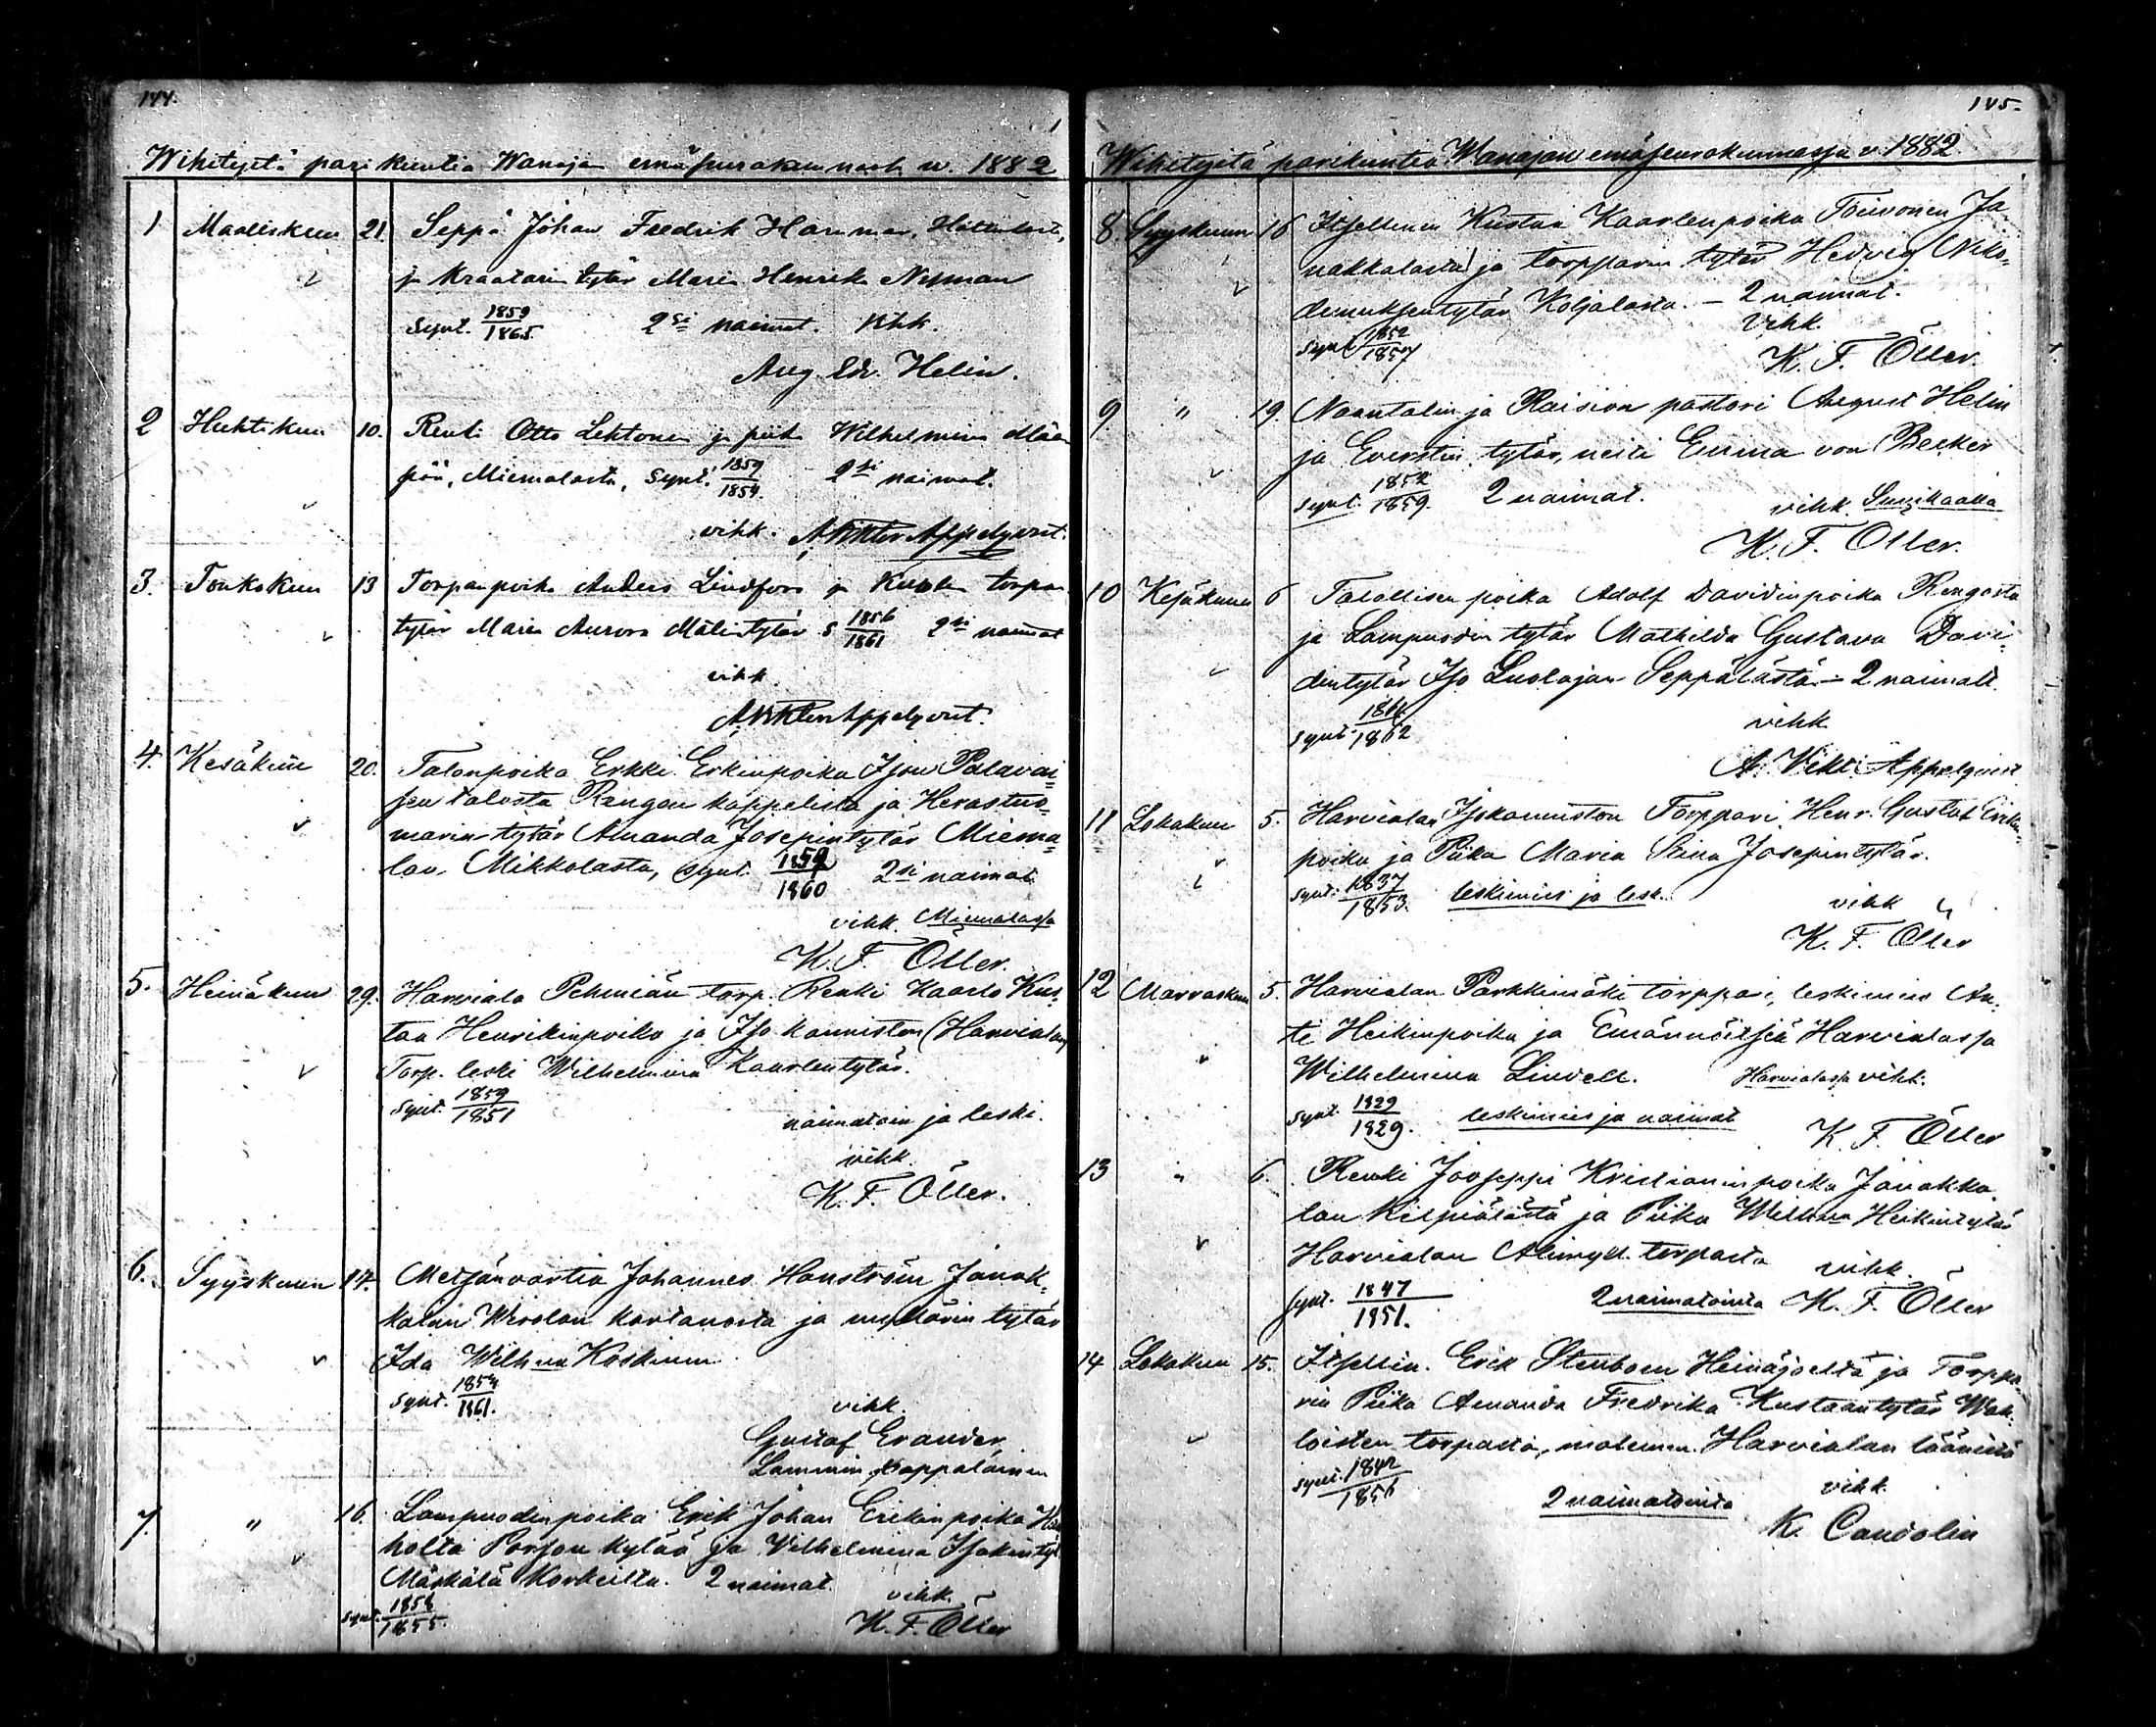 144.
Wihityitä parikuntia Wanajan emäseurakunnasta v. 1882
1 Maaliskuu 21. Seppä Johan Fredrik Hammar,
ja kraatarin tytär Maria Henrika Nyman
synt. 1859/1865. 2si naimat. vihk.
Aug. Edv. Helin.
2 Huhtikuu 10. Renki Otto Lehtonen ja piika Wilhelmina Mäen
pää, Miemalasta, synt. 1859/1854. 2si naimat.
vihk. A. Viktor Appelqvist.
3. Toukokuu 13 Torpanpoika Anders Lindfors ja torpan
tytär Maria Aurora Matintytär s 1856/1861 2si naimat
vihk.
A. Viktor Appelqvist.
4. Kesäkuu 20. Talonpoika Erkki Erkinpoika Ison Palavai-
sen talosta Rengon kappelista ja Herastuo-
marin tytär Amanda Josepintytär Miema-
lan Mikkolasta, synt. 1859/1860 2si naimat.
vihk. Miemalassa
K. F. Öller.
5. Heinäkuu 29. Harviala Pehmiän torp. Renki Kaarlo Kus-
taa Henrikinpoika ja Iso kanniston (Harvialan)
Torp. leski Wilhelmina Kaarlentytär.
synt. 1859/1851 naimatoin ja leski.
vihk.
K. F. Öller.
6. Syyskuun 14. Metsänvartia Johannes Hanström Janak-
kalan Wirolan kartanosta ja muurarin tytär
Ida Wilh:na Koskinen
synt. 1854/1861. vihk.
Gustaf Erander
Lammin kappalainen
7. " 16. Lampuodinpoika Erik Johan Erikinpoika
holta Porson kylää ja Vilhelmina Isakintyt.
Määkälä Korkeilta. 2 naimat. vihk.
synt. 1856/1855. K. F. Öller
145.
Wihityitä parikuntia Wanajan emäseurakunnassa v. 1882
8. Syyskuun 16 Itsellinen Kustaa Kaarlenpoika Toivonen Ja
nakkalasta ja torpparin tytär Hedvig Niko-
demuksentytär Koljalasta. – 2 naimat.
synt. 1852/1857 Vihk.
K. F. Öller.
9. " 19. Naantalin ja Raision pastori August Helin
ja Everstin tytär, neiti Emma von Becker
synt. 1852/1859. 2 naimat. vihk.
K. F. Öller.
10 Kesäkuun 6 Talollisen poika Adolf Davidinpoika Rengosta
ja Lampuodin tytär Mathilda Gustava Davi-
dintytär Iso Luolajan Seppälästä – 2 naimatt.
synt. 1862 vihk.
A. Vikt. Appelqvist
11 Lokakuu 5. Harvialan Isokanniston Torppari Henr. Gustaf Erkin
poika ja Piika Maria Stina Josepintytär.
synt. 1837/1853. leskimies ja lesk. vihk
K. F. Öller
12 Marraskuu 5. Harvialan Parkkimäki torppari, leskimies An-
ti Heikinpoika ja Emännöitsiä Harvialassa
Wilhelmina Lindell. Harvialassa vihk.
synt. 1829/1829. leskimies ja naimat
K. F. Öller
13 " 6. Renki Jooseppi Kristianinpoika Janakka
lan Kilpiälästä ja Piika Wilh:na Heikintytär
Harvialan Alimyll. torpasta vihk.
synt. 1847/1851. 2 naimatointa K. F. Öller
14 Lokakuu 15. Itsellin. Erik Stenboen Heinäjoelta ja Torppa-
rin Piika Amanda Fredrika Kustaantytär
loisten torpasta, molemm. Harvialan läänistä
synt. 1842/1856 vihk.
2 naimatointa
K. Candolin